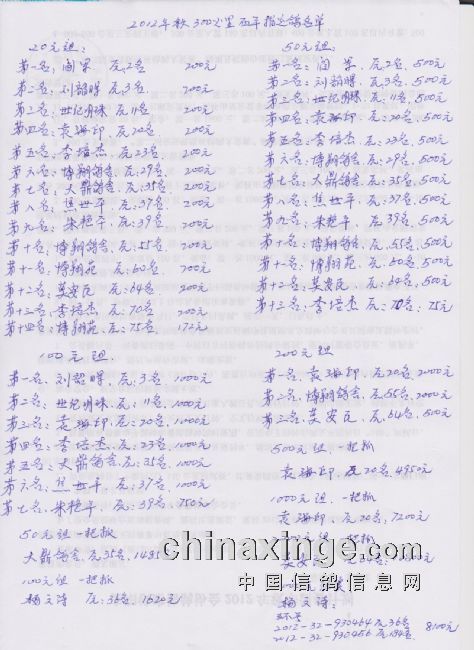 2012年秋300公里百年指定鸽名单
20元组:
第一名,阎军,瓦,2名 200元
第二名:刘韶晖,瓦3名 200元
第三名:世纪明珠,瓦11名 200元
第四名:袁海印,瓦20名 200元
第五名:李培杰,瓦23名 200元
第六名,博翔鸽舍,瓦29名 200元
第七名:大鼎鸽舍,瓦35名 200元
第八名:焦世平,瓦37名 200元
第九名:朱艳平,瓦39名 200元
第十名:博翔鸽舍,瓦55名 200元
第十一名:博翔苑,瓦:60名 200元
第十二名:吴安民,瓦64名 200元
第十三名:李培杰,瓦:70名 200元
第十四名:博翔苑,瓦:75名 172元
100元组:
第一名,刘韶晖,瓦:3名,1000元
第二名:世纪明珠,瓦:11名,1000元
第三名:袁海印,瓦:20名,1000元
第四名:李培杰,瓦:23名1000元
第五名:大鼎鸽舍,瓦:35名,1000元
第六名,焦世平,瓦:37名1000元
第七名,朱艳平,瓦:39名,750元
50元组一把抓
大鼎鸽舍,瓦35名,1485
100元组一把抓
杨文诗 瓦:36名 1620元
50元组:
第一名:阎军,瓦2名,500元
第二名:刘韶晖,瓦3名,500元
第三名:世纪明珠,瓦:11名,500元
第四名,袁海印,瓦:20名,500元
第五名:李培杰,瓦:23名,500元
第六名:博翔鸽舍,瓦:29名,500元
第七名:大鼎鸽舍,瓦:35名,500元
第八名:焦世平,瓦:37名,500元
第九名,朱艳平,瓦:39名,500元
第十名:博翔鸽舍,瓦55名,500元
第十一名:博翔苑,瓦60名,500元
第十二名:吴安民,瓦:64名,500元
第十三名:李培杰 瓦:70名:75元
200元组
第一名,袁海印,瓦20名2000元
第二名,博翔鸽舍,瓦55名2000元
第三名,吴安民,瓦64名,500元
500元组,一把抓
袁海印,瓦20名4950元
1000元组,一把抓
袁海印,瓦20名,7200元
吴安民
杨文诗:
环号
2012-32-930464瓦36名
2012-32-930456瓦184名 8100元
chinaxinge.com
中国信鸽信息网